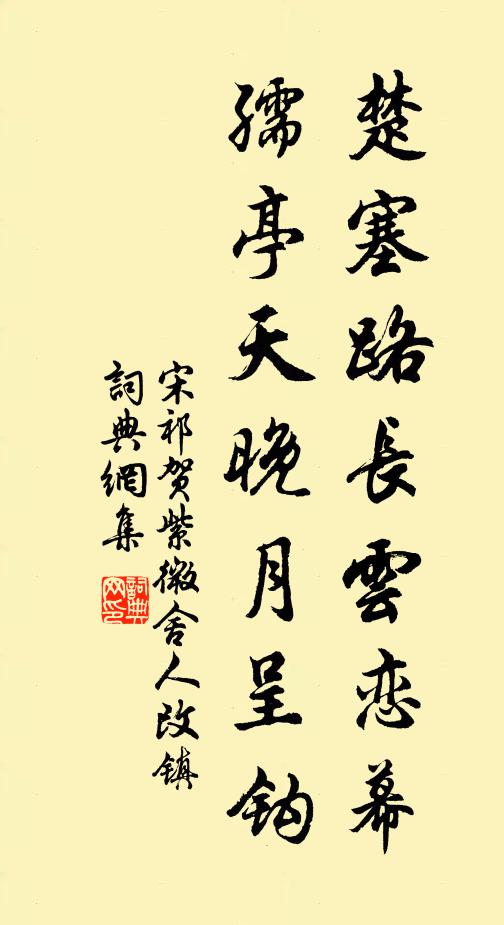 楚塞路長雲恋幕
孺亭天晚月呈鈎
宋祁贺紫微舍人改鎮
詞典網集
詞典网印